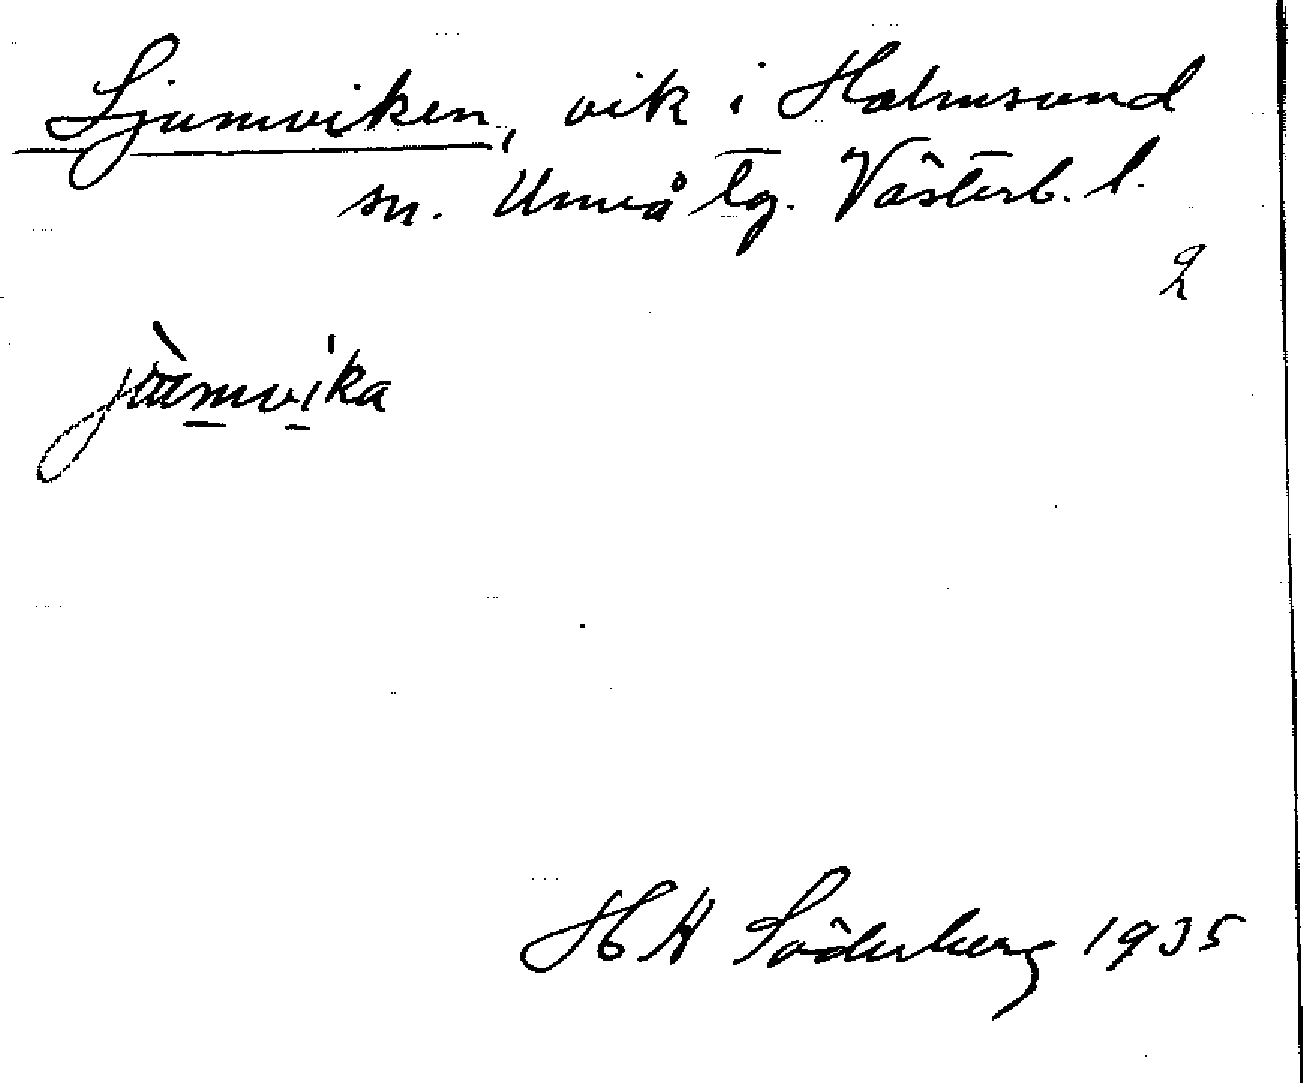 Ljumviken, vik i Holmsund
sn. Umeå tg. Västerb. l.
2
H H Söderberg 1935